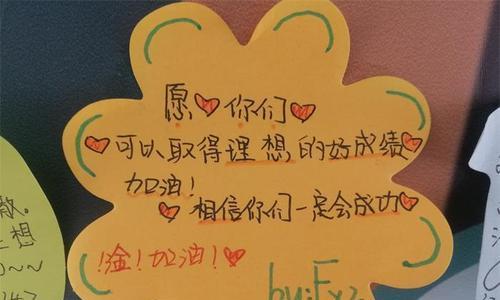 愿你们
可以取得理想的好成绩
加油!
相信你们一定会成功
!淦!加油!
by:Fxz